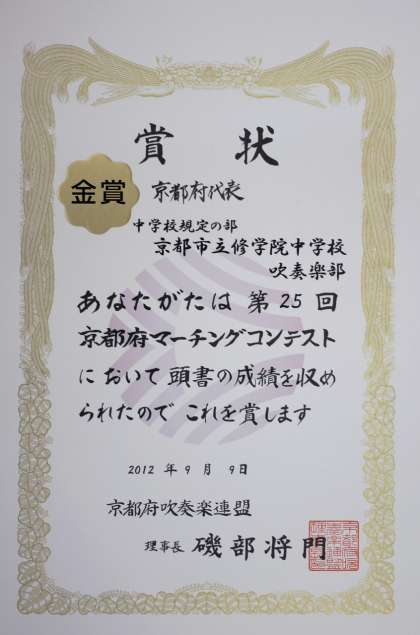 賞状
金賞
京都府代表
中学校規定の部
京都市立修学院中学校
吹奏楽部
あなたがたは第25回
京都府マーチングコンテスト
において頭書の成績を収め
られたのでこれを賞します
2012年9月9日
京都府吹奏楽連盟
理事長 磯部将門